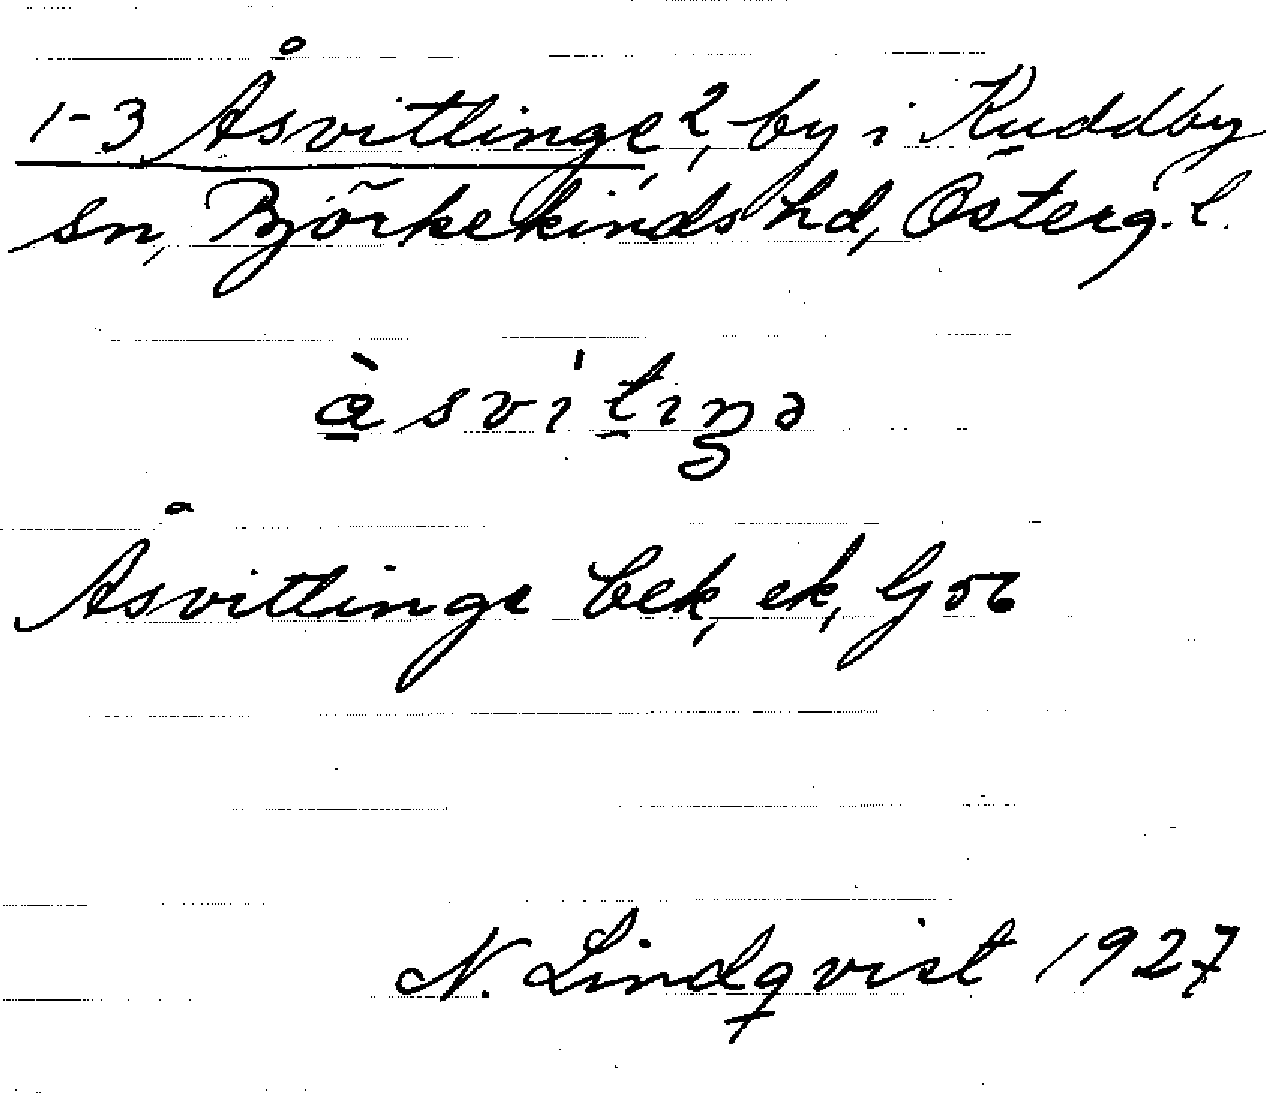 1-3 Åsvittinge, 2, by i Kuddby
sn, Björkekinds hd, Österg. l.
Åsvittinge bek, ek, G
N. Lindqvist 1927